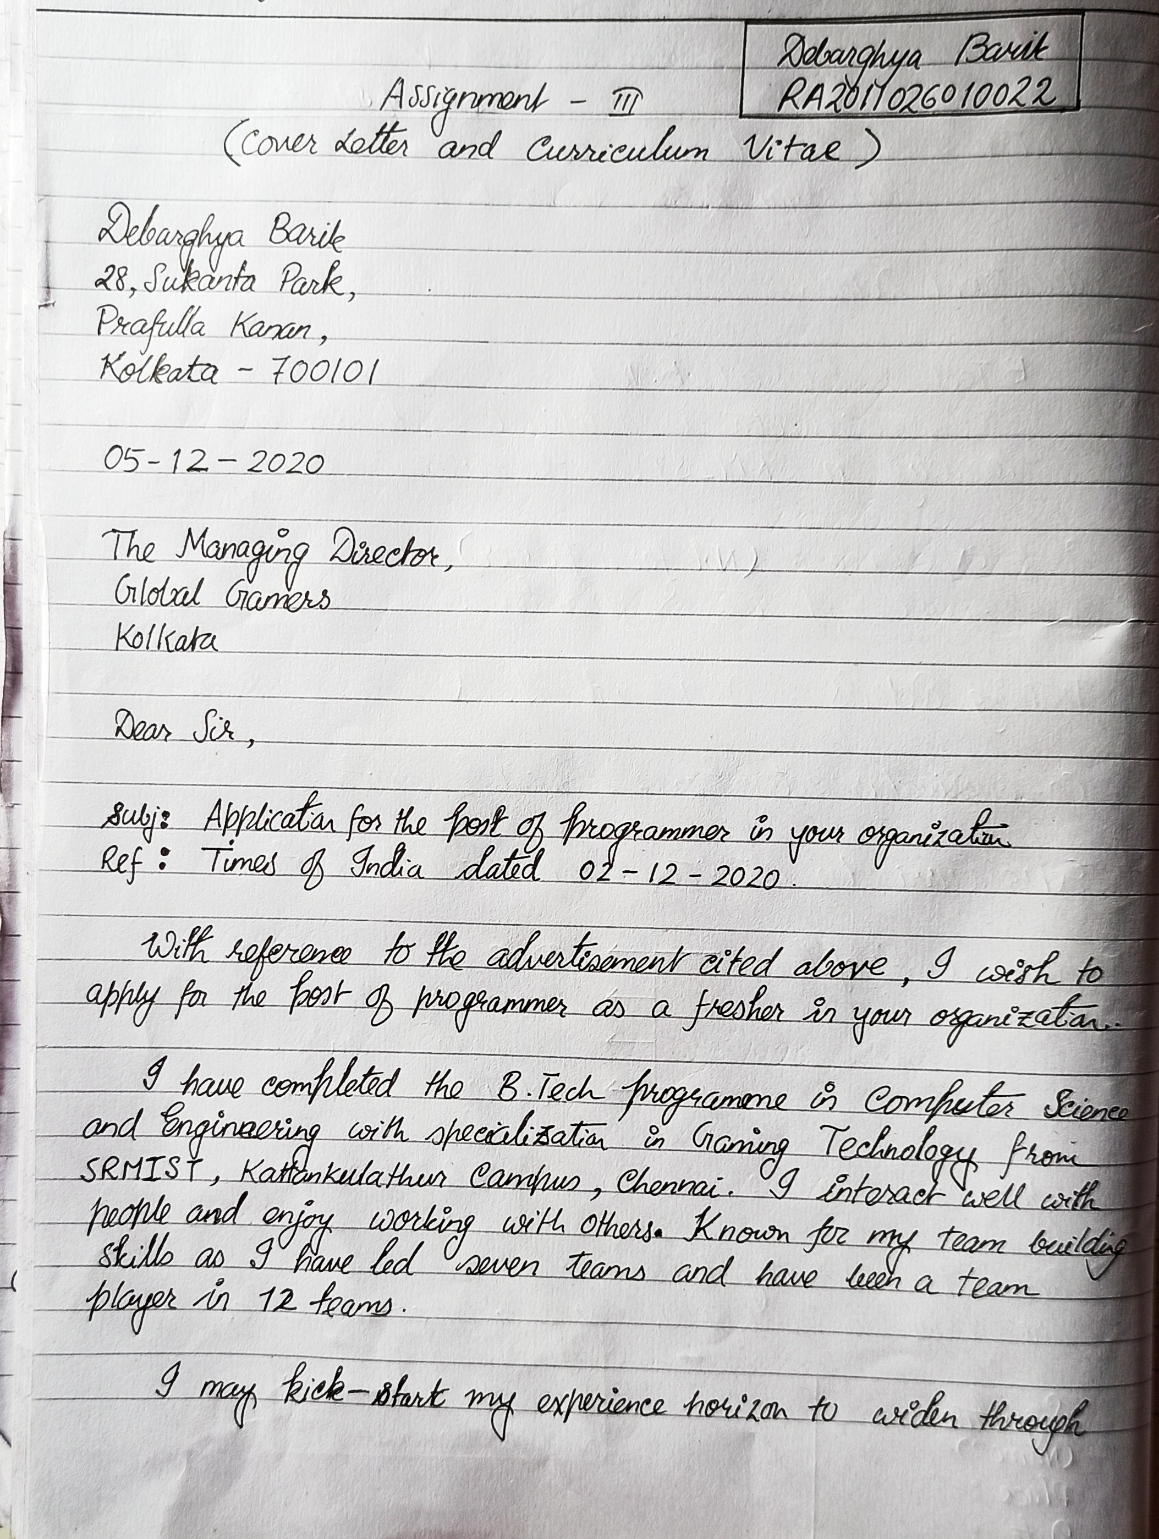 Debarghya Barik
RA2011026010022
Assignment - III
(Cover Letter and Curriculum Vitae)
Debarghya Barik
28, Sukanta Park,
Prafulla Kanan,
Kolkata - 700101
05-12-2020
The Managing Director,
Global Gamers
Kolkata
Dear Sir,
Subj: Application for the post of programmer in your organization
Ref: Times of India dated 02-12-2020.
With reference to the advertisement cited above, I wish to
apply for the post of programmer as a fresher in your organization.
I have completed the B.Tech programme in Computer Science
and Engineering with specialization in Gaming Technology from
SRMIST, Kattankulathur Campus, Chennai. I interact well with
people and enjoy working with others. Known for my team building
skills as I have led seven teams and have been a team
player in 12 teams.
I may kick-start my experience horizon to widen through